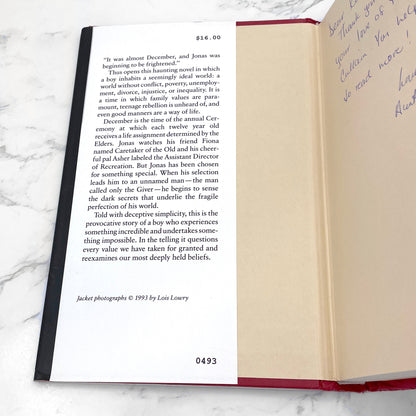 $16.00
"It was almost December, and Jonas was
beginning to be frightened."
Thus opens this haunting novel in which
a boy inhabits a seemingly ideal world: a
world without conflict, poverty, unemploy-
ment, divorce, injustice, or inequality. It is
a time in which family values are para-
mount, teenage rebellion is unheard of, and
even good manners are a way of life.
December is the time of the annual Cer-
emony at which each twelve year old
receives a life assignment determined by the
Elders. Jonas watches his friend Fiona
named Caretaker of the Old and his cheer-
ful pal Asher labeled the Assistant Director
of Recreation. But Jonas has been chosen
for something special. When his selection
leads him to an unnamed man—the man
called only the Giver—he begins to sense
the dark secrets that underlie the fragile
perfection of his world.
Told with deceptive simplicity, this is the
provocative story of a boy who experiences
something incredible and undertakes some-
thing impossible. In the telling it questions
every value we have taken for granted and
reexamines our most deeply held beliefs.
Jacket photographs © 1993 by Lois Lowry
0493
Dear
Thank you
your love of
you help
to read more!